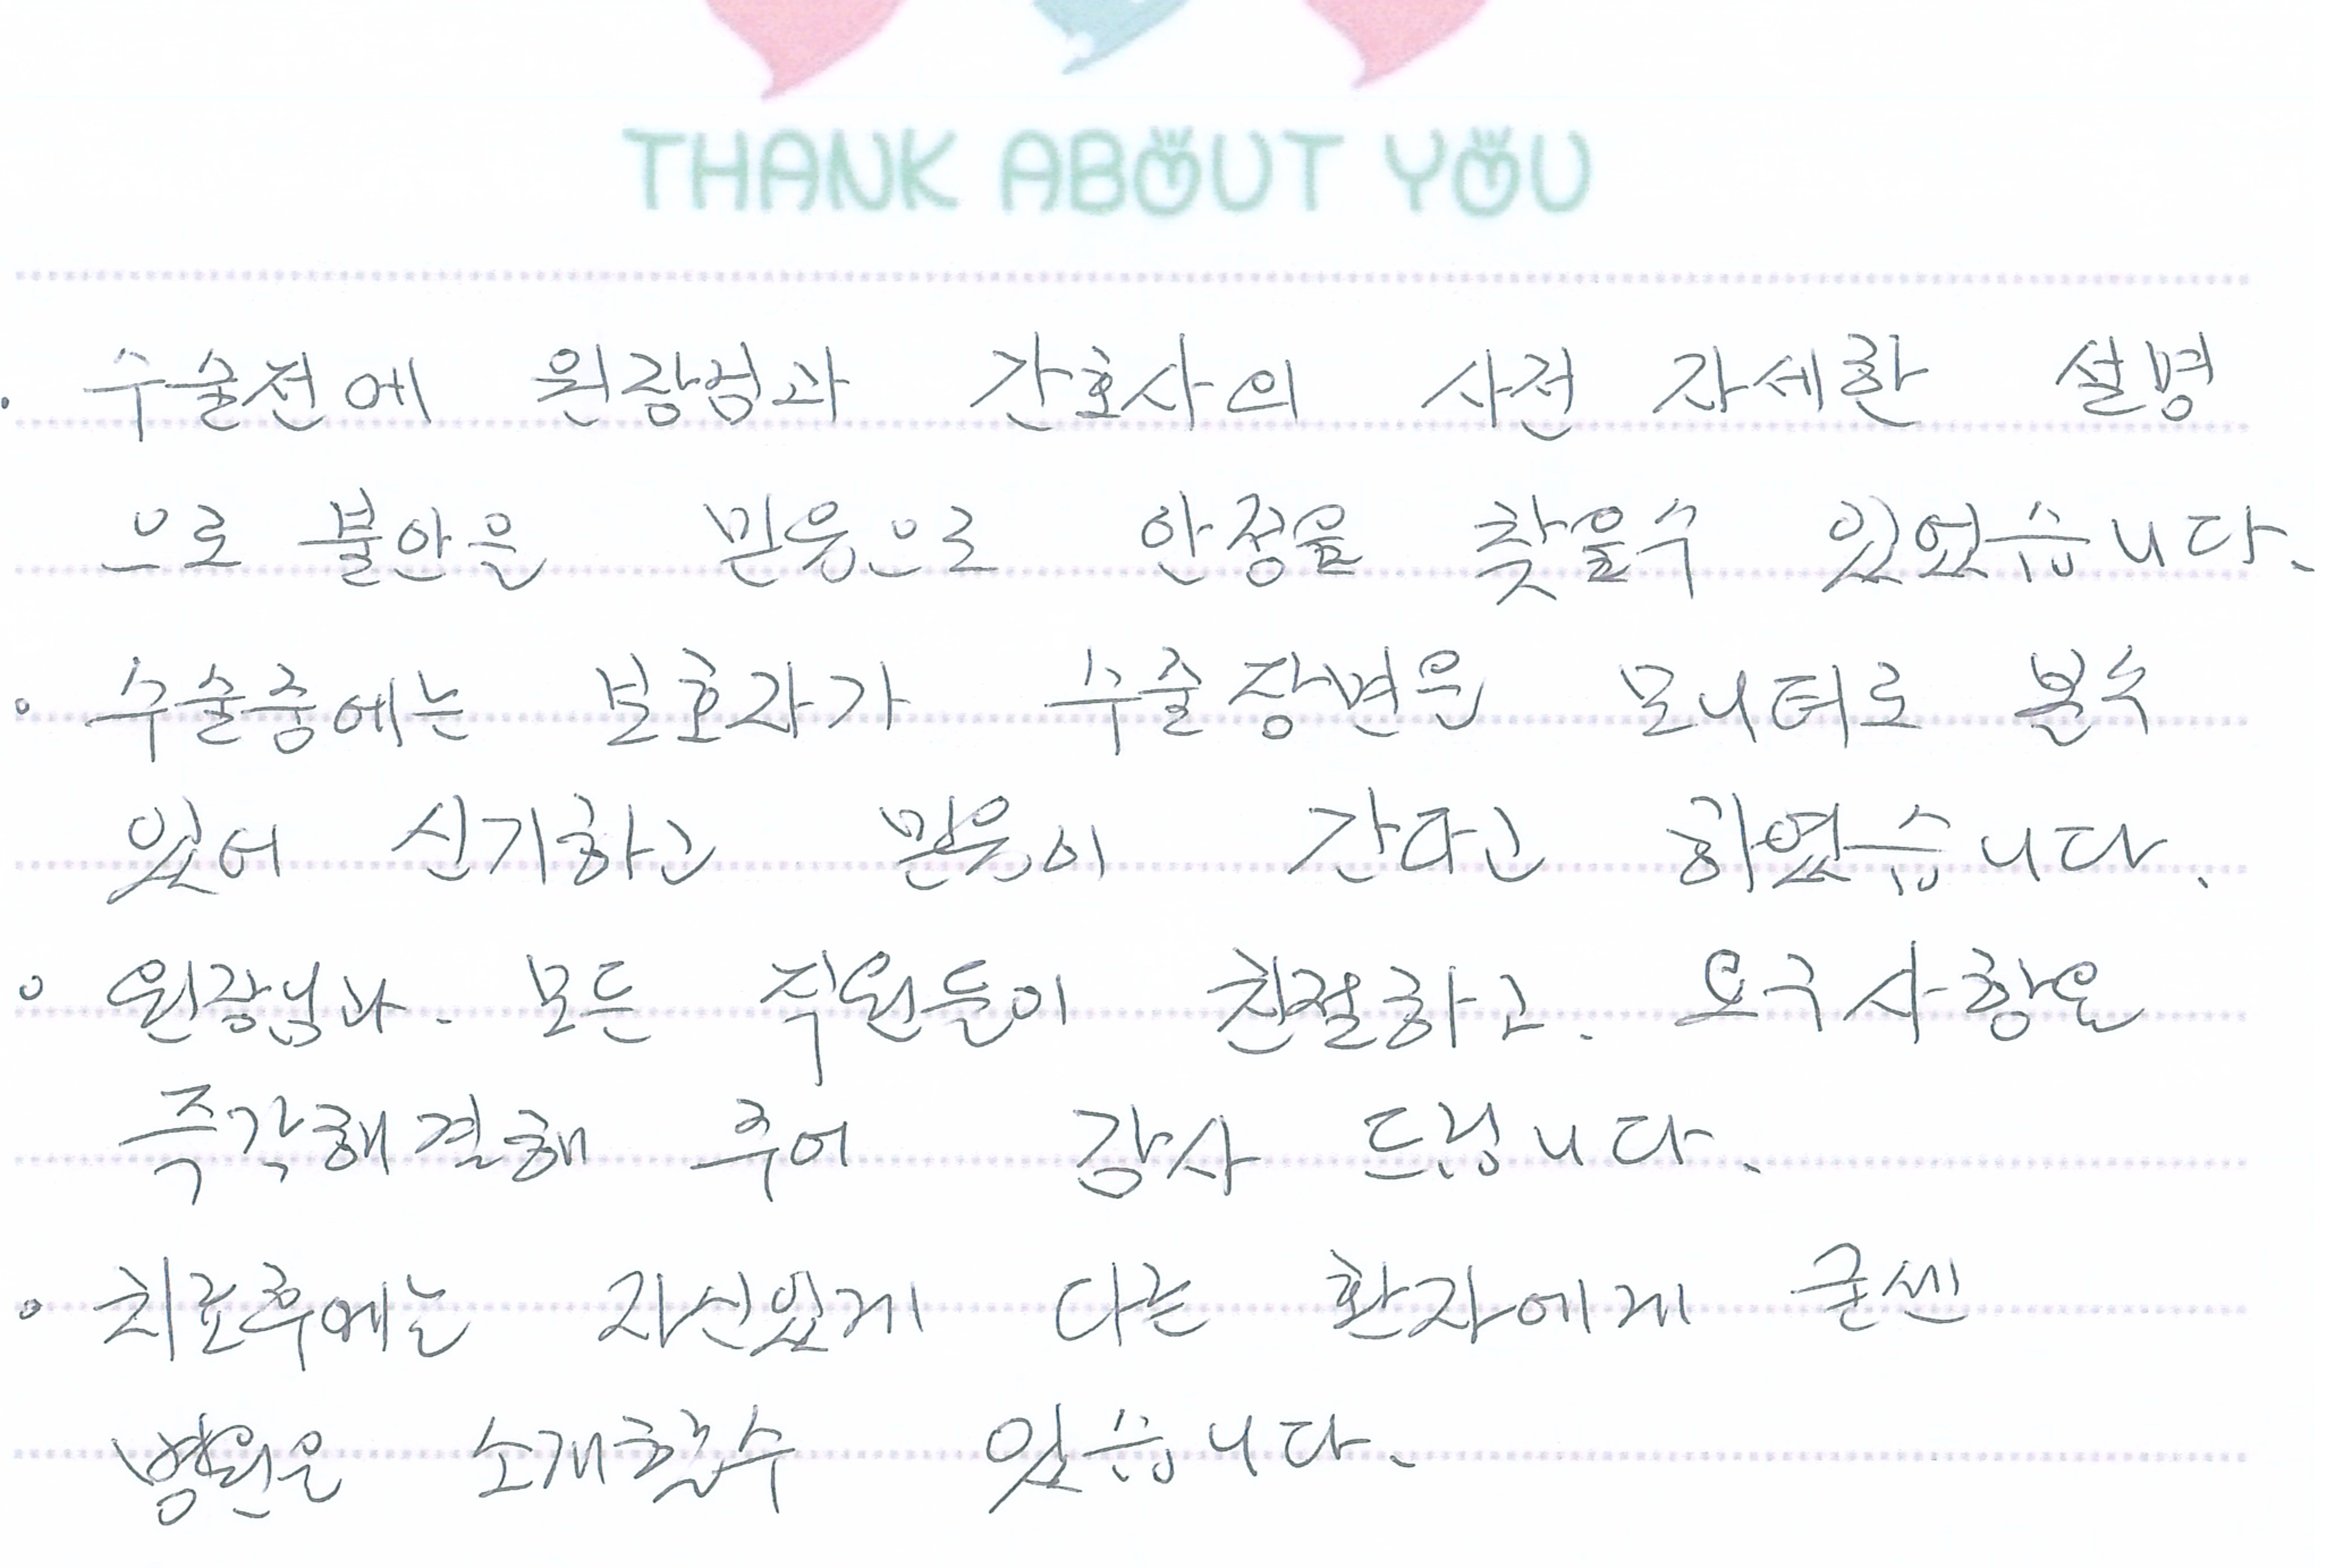 THANK ABOUT YOU
. 수술전에 원장님과 간호사의 사전 자세한 설명
으로 불안을 믿음으로 안정을 찾을수 있었습니다.
. 수술중에는 보호자가 수술장면을 모니터로 볼수
있어 신기하고 믿음이 간다고 하였습니다.
. 원장님과. 모든 직원들이 친절하고. 요구사항을
즉각해결해 주어 감사 드립니다.
. 치료후에는 자신있게 다른 환자에게 굳센
병원을 소개할수 있습니다.